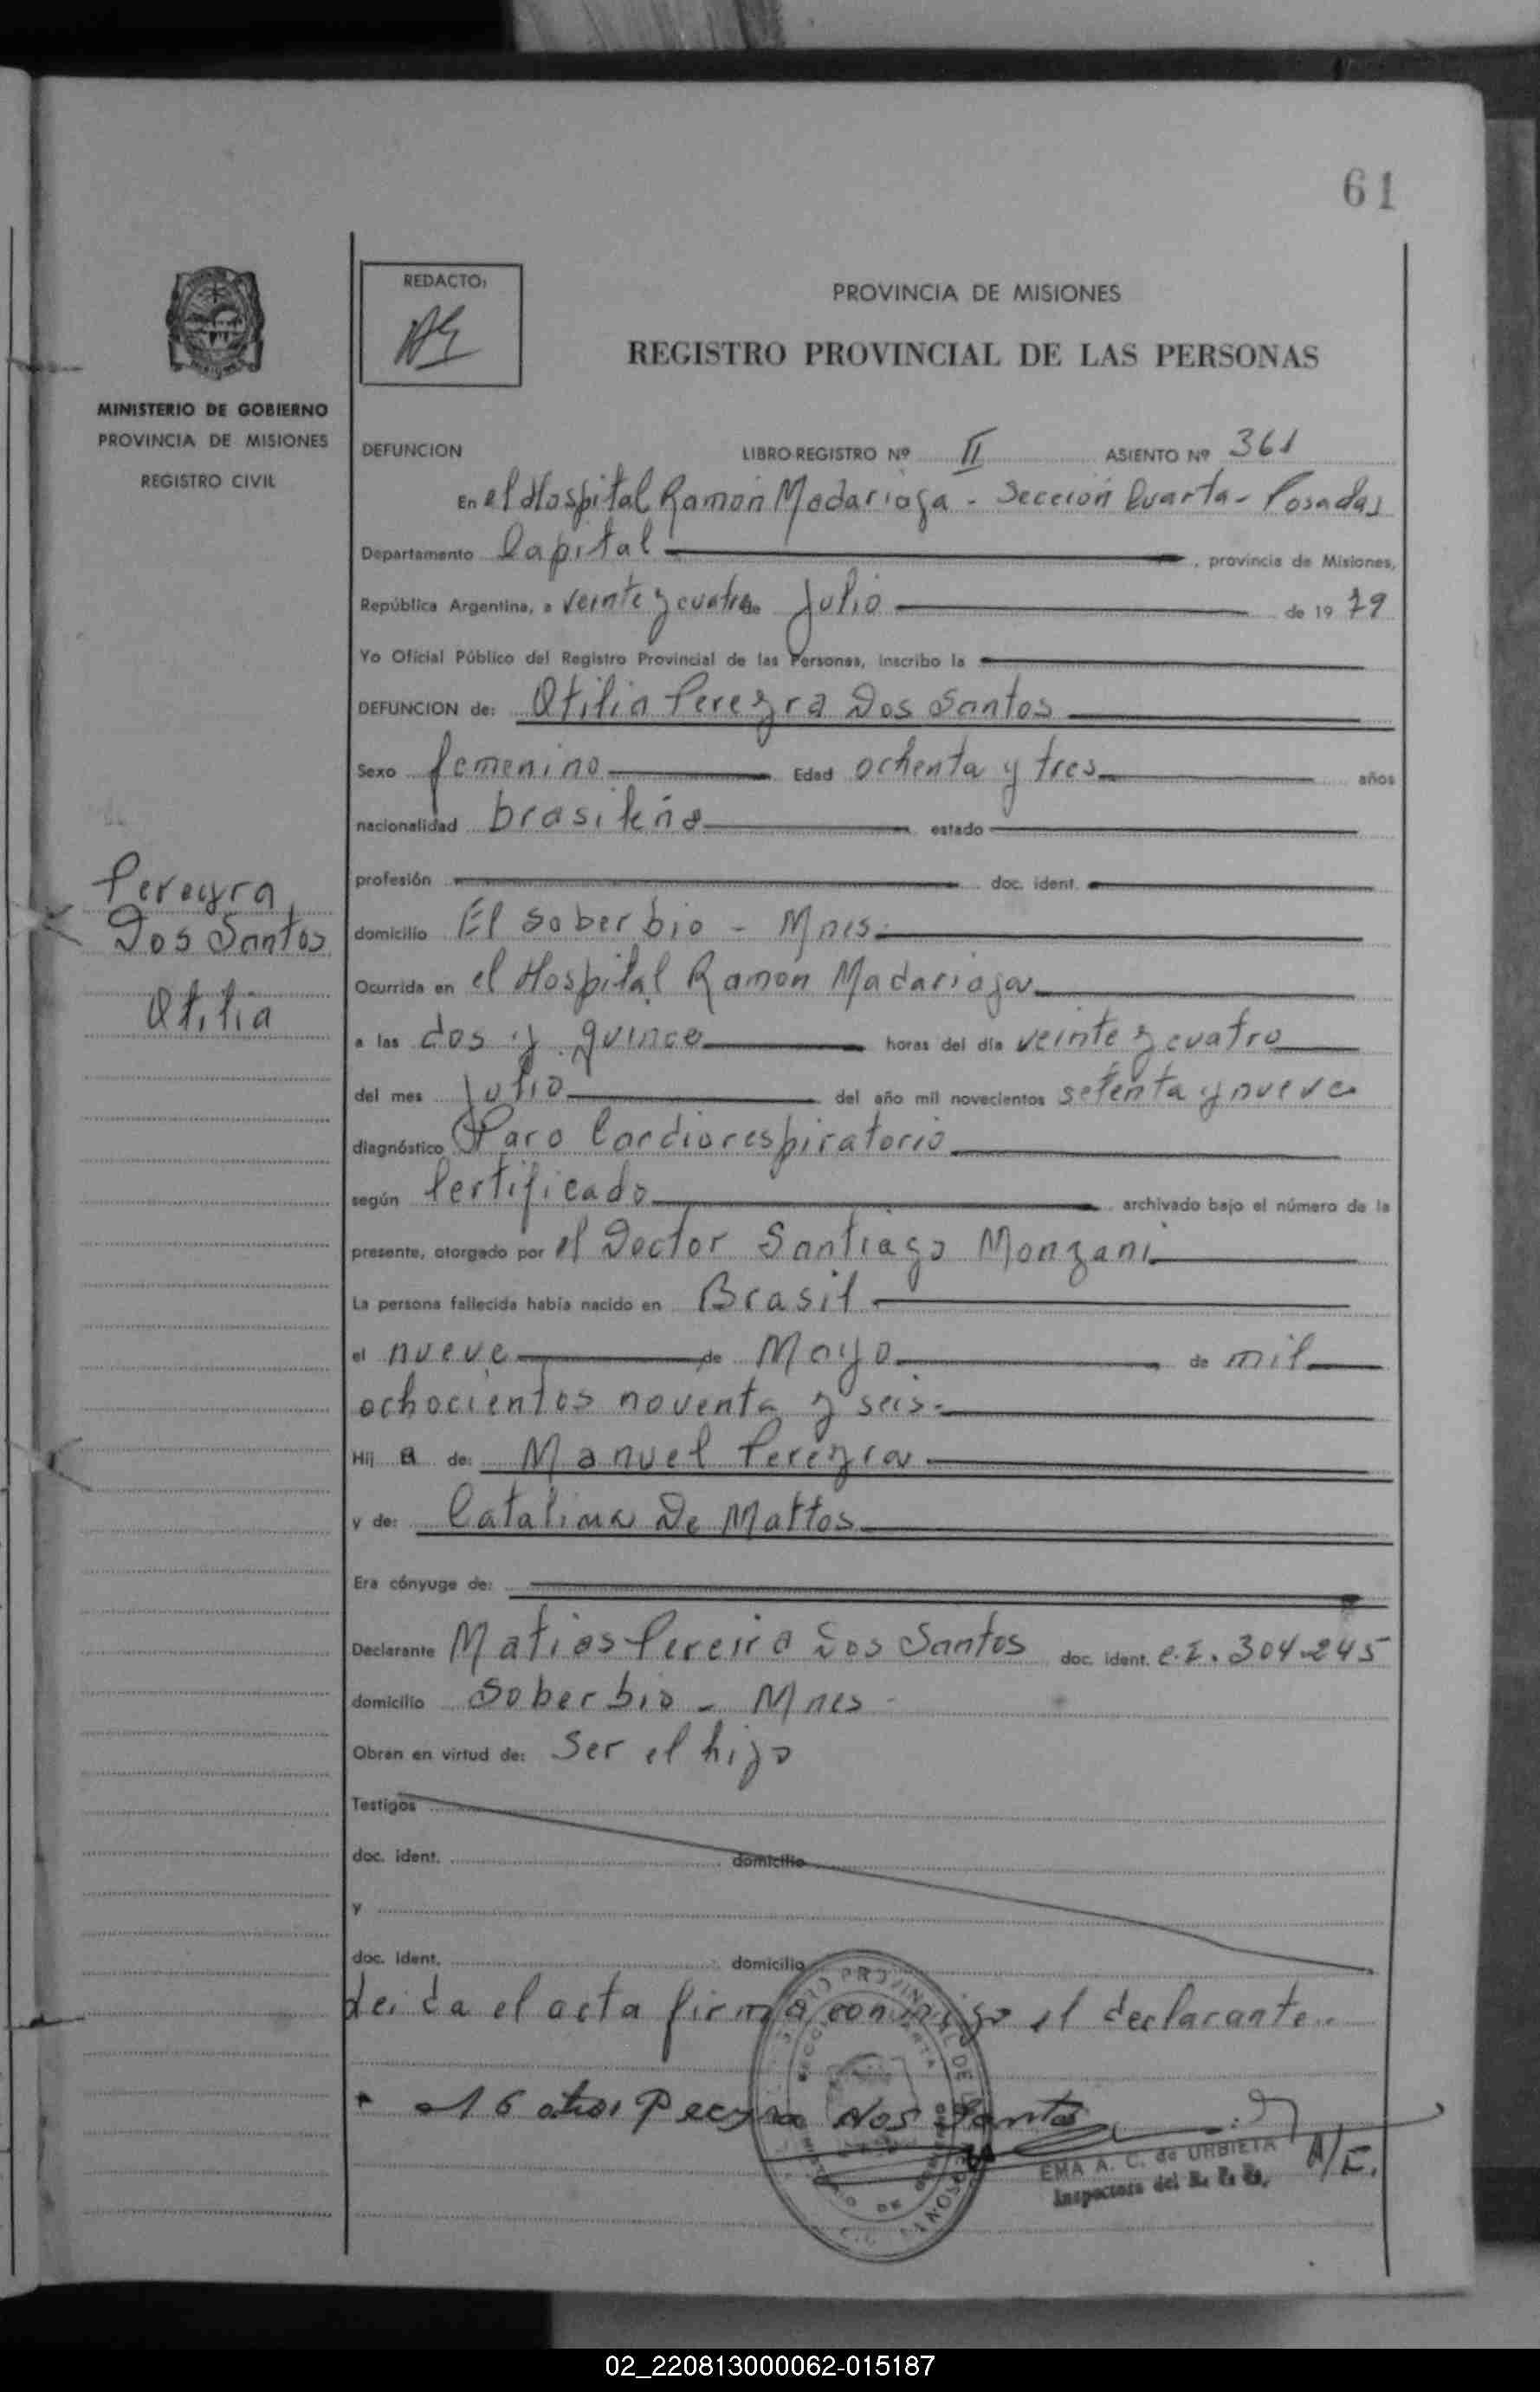 61
REDACTO:
PROVINCIA DE MISIONES
REGISTRO PROVINCIAL DE LAS PERSONAS
MINISTERIO DE GOBIERNO
PROVINCIA DE MISIONES
REGISTRO CIVIL
DEFUNCION LIBRO-REGISTRO Nº II ASIENTO Nº 361
En el Hospital Ramón Madariaga - Sección Cuarta - Posadas
Departamento Capital , provincia de Misiones,
República Argentina, a veinte y cuatro de Julio de 1979
Yo Oficial Público del Registro Provincial de las Personas, inscribo la
DEFUNCION de: Otilia Pereyra Dos Santos
Sexo femenino Edad ochenta y tres años
nacionalidad brasileña estado
profesión doc. ident.
Pereyra
Dos Santos
Otilia
domicilio El Soberbio - Mnes.
Ocurrida en el Hospital Ramon Madariaga
a las dos y quince horas del día veinte y cuatro
del mes Julio del año mil novecientos setenta y nueve
diagnóstico Paro Cardiorespiratorio
según Certificado archivado bajo el número de la
presente, otorgado por el Doctor Santiago Monzani
La persona fallecida había nacido en Brasil
el nueve de Mayo de mil
ochocientos noventa y seis.
Hij a de: Manuel Pereyra
y de: Catalina De Mattos
Era cónyuge de:
Declarante Matias Pereira Dos Santos doc. ident. C.I. 304.245
domicilio Soberbio - Mnes -
Obran en virtud de: Ser el hijo
Testigos
doc. ident. domicilio
y
doc. ident. domicilio
Leida el acta firma conmigo el declarante..
Dos Santos
EMA A. C. de URBIETA
Inspectora del R. P. P.
A/E.
02_220813000062-015187